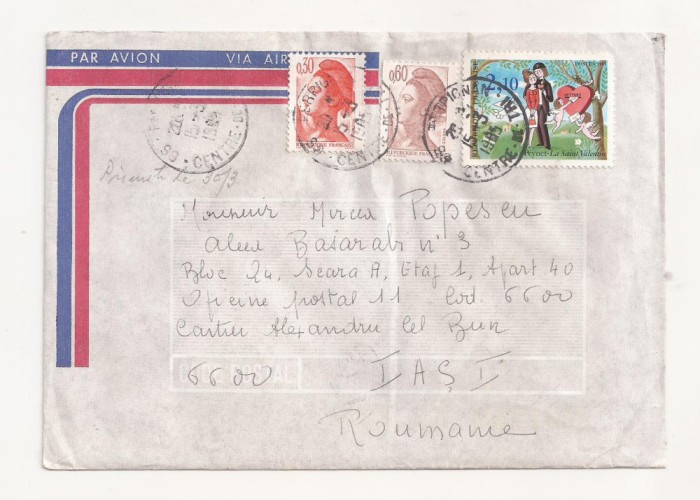 PAR AVION VIA AIR
0,30
0,60
2,10
REPUBLIQUE FRANÇAISE
REPUBLIQUE FRANÇAISE
Peynet-La Saint Valentin
66 - CENTRE-DE
1985
CENTRE-DE
1985
CENTRE-DE
1985
Primită le 30/3
Monsieur Mircea Popescu
aleea Basarabi n° 3
Bloc 24, Scara A, Etaj 1, Apart 40
Oficine postal 11 Cod. 6600
Cartier Alexandru cel Bun
6600 IAȘI
Roumanie